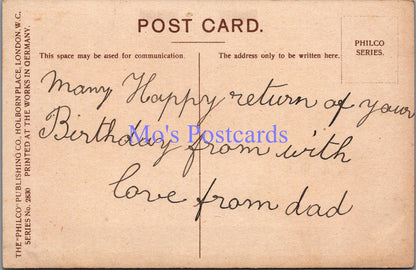 POST CARD.
This space may be used for communication.
The address only to be written here.
PHILCO
SERIES.
THE "PHILCO" PUBLISHING CO., HOLBORN PLACE, LONDON, W.C.
SERIES No. 2830 PRINTED AT THE WORKS IN GERMANY.
Many Happy return of your
Birthday from with
love from dad
Mo's Postcards